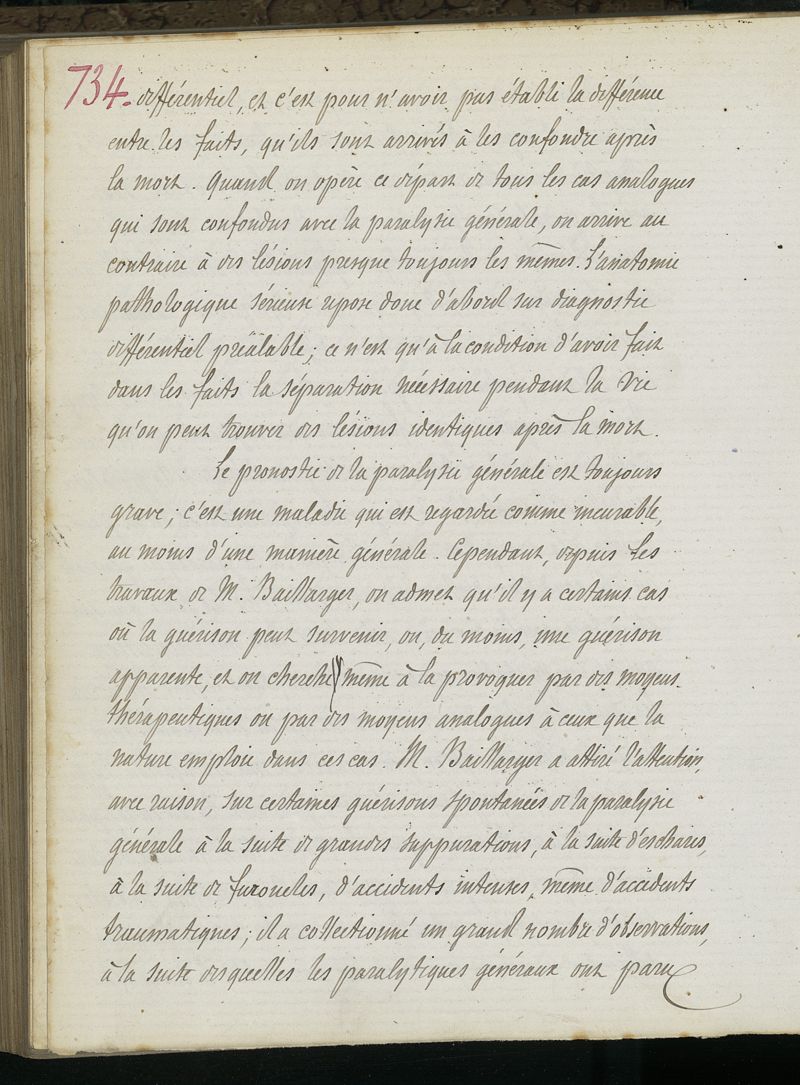 734. différentiel, et c'est pour n'avoir pas établi la différence
entre les faits, qu'ils sont arrivés à les confondre après
la mort. Quand on opère ce départ de tous les cas analogues
qui sont confondus avec la paralysie générale, on arrive au
contraire à des lésions presque toujours les mêmes. L'anatomie
pathologique sérieuse repose donc d'abord sur diagnostic
différentiel préalable; ce n'est qu'à la condition d'avoir fait
dans les faits la séparation nécessaire pendant la vie
qu'on peut trouver des lésions identiques après la mort.
Le pronostic de la paralysie générale est toujours
grave; c'est une maladie qui est regardée comme incurable,
au moins d'une manière générale. Cependant, depuis les
travaux de M. Baillarger, on admet qu'il y a certains cas
où la guérison peut survenir, ou, du moins, une guérison
apparente, et on cherche même à la provoquer par des moyens
thérapeutiques ou par des moyens analogues à ceux que la
nature emploie dans ces cas. M. Baillarger a attiré l'attention,
avec raison, sur certaines guérisons spontanées de la paralysie
générale à la suite de grandes suppurations, à la suite d'eschares,
à la suite de furoncles, d'accidents intenses, même d'accidents
traumatiques; il a collectionné un grand nombre d'observations,
à la suite desquelles les paralytiques généraux ont paru